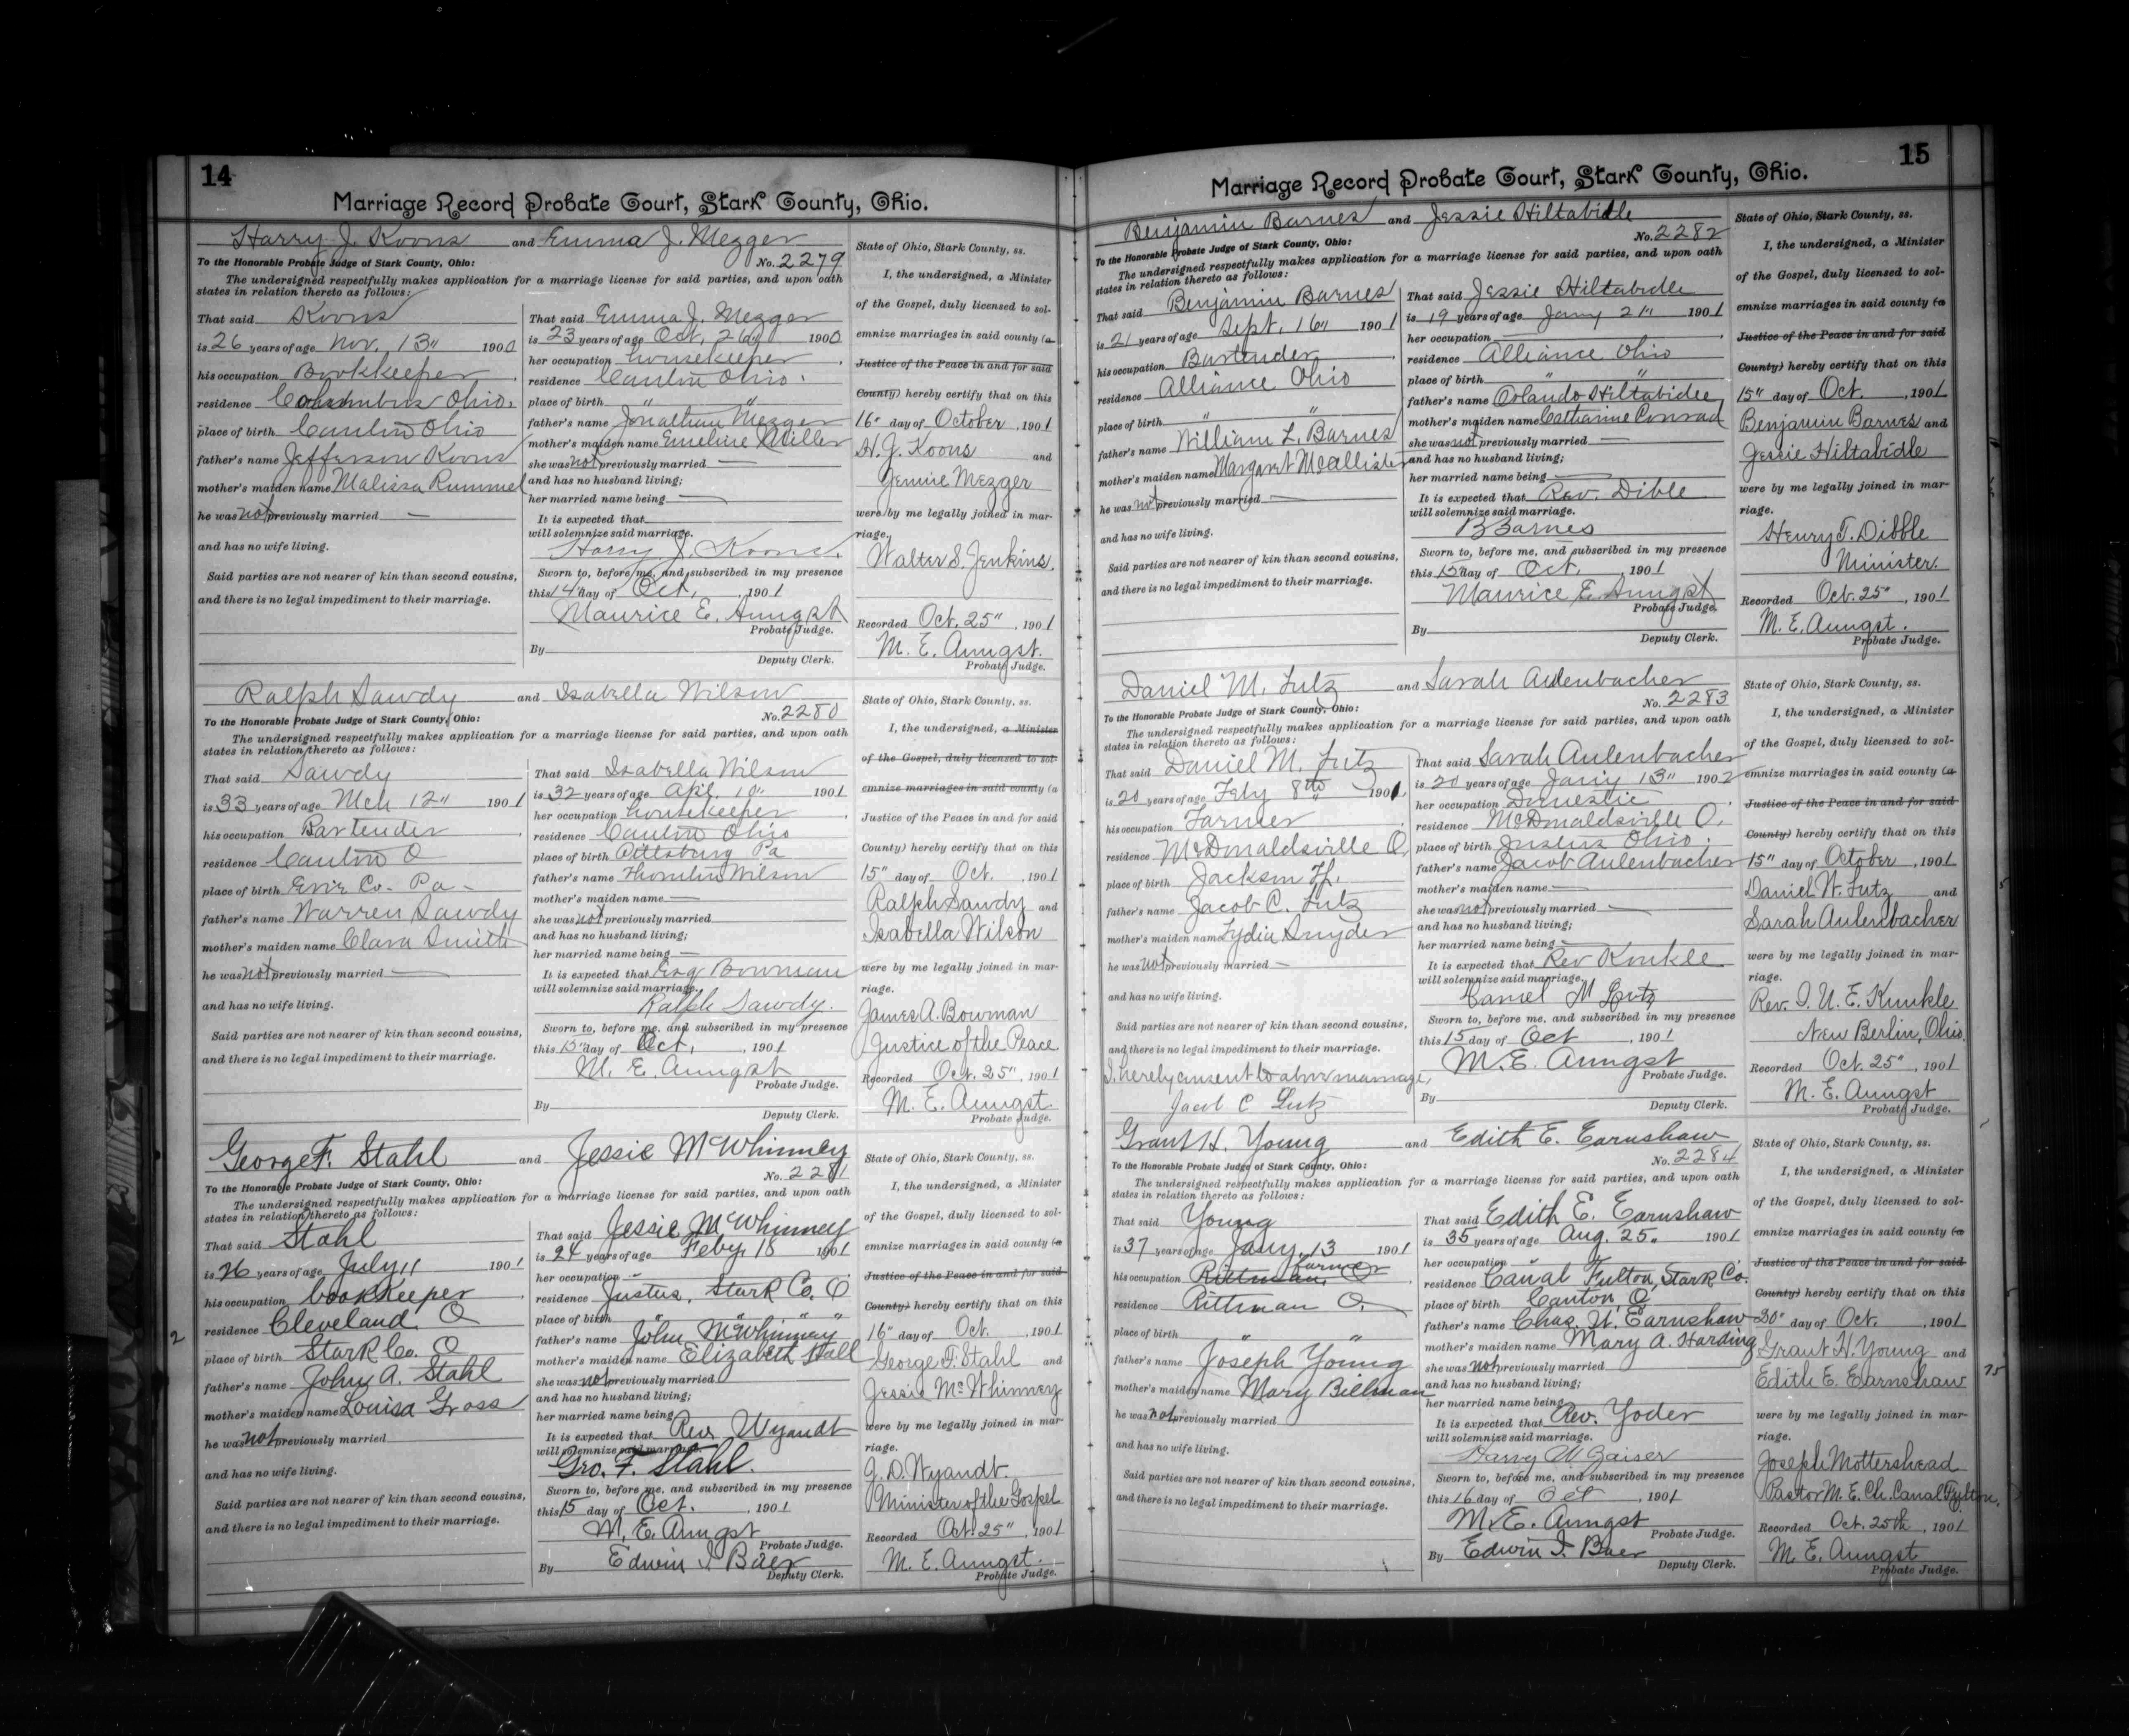 14
Marriage Record Probate Court, Stark County, Ohio.
Harry J. Koons and Emma J. Mezger
No. 2279
To the Honorable Probate Judge of Stark County, Ohio:
The undersigned respectfully makes application for a marriage license for said parties, and upon oath
states in relation thereto as follows:
That said Koons
is 26 years of age Nov. 13" 1900
his occupation Bookkeeper
residence Columbus Ohio.
place of birth Canton Ohio
father's name Jefferson Koons
mother's maiden name Malissa Rummel
he was not previously married —
and has no wife living.
Said parties are not nearer of kin than second cousins,
and there is no legal impediment to their marriage.
That said Emma J. Mezger
is 23 years of age Oct. 26" 1900
her occupation housekeeper
residence Canton Ohio.
place of birth " "
father's name Jonathan Mezger
mother's maiden name Emeline Miller
she was not previously married —
and has no husband living;
her married name being —
It is expected that
will solemnize said marriage.
Harry J. Koons.
Sworn to, before me, and subscribed in my presence
this 14" day of Oct, 1901
Maurice E. Aungst
Probate Judge.
By
Deputy Clerk.
State of Ohio, Stark County, ss.
I, the undersigned, a Minister
of the Gospel, duly licensed to sol-
emnize marriages in said county (a
Justice of the Peace in and for said
County) hereby certify that on this
16" day of October, 1901
H. J. Koons and
Jennie Mezger
were by me legally joined in mar-
riage.
Walter S. Jenkins.
Recorded Oct. 25", 1901
M. E. Aungst.
Probate Judge.
Ralph Sawdy and Isabella Wilson
No. 2280
To the Honorable Probate Judge of Stark County, Ohio:
The undersigned respectfully makes application for a marriage license for said parties, and upon oath
states in relation thereto as follows:
That said Sawdy
is 33 years of age Mch 12" 1901
his occupation Bartender
residence Canton O
place of birth Erie Co. Pa.
father's name Warren Sawdy
mother's maiden name Clara Smith
he was not previously married —
and has no wife living.
Said parties are not nearer of kin than second cousins,
and there is no legal impediment to their marriage.
That said Isabella Wilson
is 32 years of age Apr. 10" 1901
her occupation housekeeper
residence Canton Ohio
place of birth Pittsburg Pa
father's name Wilson
mother's maiden name —
she was not previously married
and has no husband living;
her married name being —
It is expected that Esq Bowman
will solemnize said marriage.
Ralph Sawdy.
Sworn to, before me, and subscribed in my presence
this 15" day of Oct, 1901
M. E. Aungst
Probate Judge.
By
Deputy Clerk.
State of Ohio, Stark County, ss.
I, the undersigned, a Minister
of the Gospel, duly licensed to sol-
emnize marriages in said county (a
Justice of the Peace in and for said
County) hereby certify that on this
15" day of Oct., 1901
Ralph Sawdy and
Isabella Wilson
were by me legally joined in mar-
riage.
James A. Bowman
Justice of the Peace.
Recorded Oct. 25", 1901
M. E. Aungst.
Probate Judge.
George F. Stahl and Jessie McWhinney
No. 2281
To the Honorable Probate Judge of Stark County, Ohio:
The undersigned respectfully makes application for a marriage license for said parties, and upon oath
states in relation thereto as follows:
That said Stahl
is 26 years of age July 11 1901
his occupation bookkeeper
2
residence Cleveland O
place of birth Stark Co. O
father's name John A. Stahl
mother's maiden name Louisa Gross
he was not previously married
and has no wife living.
Said parties are not nearer of kin than second cousins,
and there is no legal impediment to their marriage.
That said Jessie McWhinney
is 24 years of age Feby. 18 1901
her occupation —
residence Justus, Stark Co. O
place of birth " " " "
father's name John McWhinney
mother's maiden name Elizabeth Stall
she was not previously married
and has no husband living;
her married name being
It is expected that Rev. Wyandt
will solemnize said marriage.
Geo. F. Stahl.
Sworn to, before me, and subscribed in my presence
this 15 day of Oct. 1901
M. E. Aungst
Probate Judge.
By Edwin I. Baer
Deputy Clerk.
State of Ohio, Stark County, ss.
I, the undersigned, a Minister
of the Gospel, duly licensed to sol-
emnize marriages in said county (a
Justice of the Peace in and for said
County) hereby certify that on this
16" day of Oct., 1901
George F. Stahl and
Jessie McWhinney
were by me legally joined in mar-
riage.
G. D. Wyandt.
Minister of the Gospel
Recorded Oct. 25", 1901
M. E. Aungst.
Probate Judge.
15
Marriage Record Probate Court, Stark County, Ohio.
Benjamin Barnes and Jessie Hiltabidle
No. 2282
To the Honorable Probate Judge of Stark County, Ohio:
The undersigned respectfully makes application for a marriage license for said parties, and upon oath
states in relation thereto as follows:
That said Benjamin Barnes
is 21 years of age Sept. 16" 1901
his occupation Bartender
residence Alliance Ohio
place of birth " "
father's name William L. Barnes
mother's maiden name Margaret McAllister
he was not previously married —
and has no wife living.
Said parties are not nearer of kin than second cousins,
and there is no legal impediment to their marriage.
That said Jessie Hiltabidle
is 19 years of age Jany 21" 1901
her occupation —
residence Alliance Ohio
place of birth " "
father's name Orlando Hiltabidle
mother's maiden name Catharine Conrad
she was not previously married —
and has no husband living;
her married name being —
It is expected that Rev. Dible
will solemnize said marriage.
B Barnes
Sworn to, before me, and subscribed in my presence
this 15 day of Oct., 1901
Maurice E. Aungst
Probate Judge.
By
Deputy Clerk.
State of Ohio, Stark County, ss.
I, the undersigned, a Minister
of the Gospel, duly licensed to sol-
emnize marriages in said county (a
Justice of the Peace in and for said
County) hereby certify that on this
15" day of Oct., 1901
Benjamin Barnes and
Jessie Hiltabidle
were by me legally joined in mar-
riage.
Henry T. Dibble
Minister.
Recorded Oct. 25", 1901
M. E. Aungst.
Probate Judge.
Daniel M. Lutz and Sarah Aulenbacher
No. 2283
To the Honorable Probate Judge of Stark County, Ohio:
The undersigned respectfully makes application for a marriage license for said parties, and upon oath
states in relation thereto as follows:
That said Daniel M. Lutz
is 20 years of age Feby 8th 1901,
his occupation Farmer
residence McDonaldsville O,
place of birth Jackson Tp.
father's name Jacob C. Lutz
mother's maiden name Lydia Snyder
he was not previously married —
and has no wife living.
Said parties are not nearer of kin than second cousins,
and there is no legal impediment to their marriage.
I hereby consent to above marriage,
Jacob C Lutz
That said Sarah Aulenbacher
is 20 years of age Jany 13" 1902
her occupation Domestic
residence McDonaldsville O.
place of birth Justus Ohio.
father's name Jacob Aulenbacher
mother's maiden name —
she was not previously married —
and has no husband living;
her married name being —
It is expected that Rev Kunkle
will solemnize said marriage.
Daniel M Lutz
Sworn to, before me, and subscribed in my presence
this 15 day of Oct 1901
M. E. Aungst
Probate Judge.
By
Deputy Clerk.
State of Ohio, Stark County, ss.
I, the undersigned, a Minister
of the Gospel, duly licensed to sol-
emnize marriages in said county (a
Justice of the Peace in and for said
County) hereby certify that on this
15" day of October, 1901
Daniel W. Lutz and
Sarah Aulenbacher
were by me legally joined in mar-
riage.
Rev. I. U. E. Kunkle
New Berlin, Ohio.
Recorded Oct. 25", 1901
M. E. Aungst
Probate Judge.
Grant H. Young and Edith E. Earnshaw
No. 2284
To the Honorable Probate Judge of Stark County, Ohio:
The undersigned respectfully makes application for a marriage license for said parties, and upon oath
states in relation thereto as follows:
That said Young
is 37 years of age Jany. 13 1901
his occupation Rittman, O farmer
residence Rittman O.
place of birth " "
father's name Joseph Young
mother's maiden name Mary Billman
he was not previously married
and has no wife living.
Said parties are not nearer of kin than second cousins,
and there is no legal impediment to their marriage.
That said Edith E. Earnshaw
is 35 years of age Aug. 25" 1901
her occupation —
residence Canal Fulton, Stark Co.
place of birth Canton, O
father's name Chas. W. Earnshaw
mother's maiden name Mary A. Harding
she was not previously married
and has no husband living;
her married name being
It is expected that Rev. Yoder
will solemnize said marriage.
Harry W Gaiser
Sworn to, before me, and subscribed in my presence
this 16 day of Oct, 1901
M. E. Aungst
Probate Judge.
By Edwin I. Baer
Deputy Clerk.
State of Ohio, Stark County, ss.
I, the undersigned, a Minister
of the Gospel, duly licensed to sol-
emnize marriages in said county (a
Justice of the Peace in and for said
County) hereby certify that on this
30" day of Oct., 1901
Grant H. Young and
Edith E. Earnshaw
75
were by me legally joined in mar-
riage.
Joseph Mottershead
Pastor M. E. Ch. Canal Fulton.
Recorded Oct. 25th, 1901
M. E. Aungst
Probate Judge.